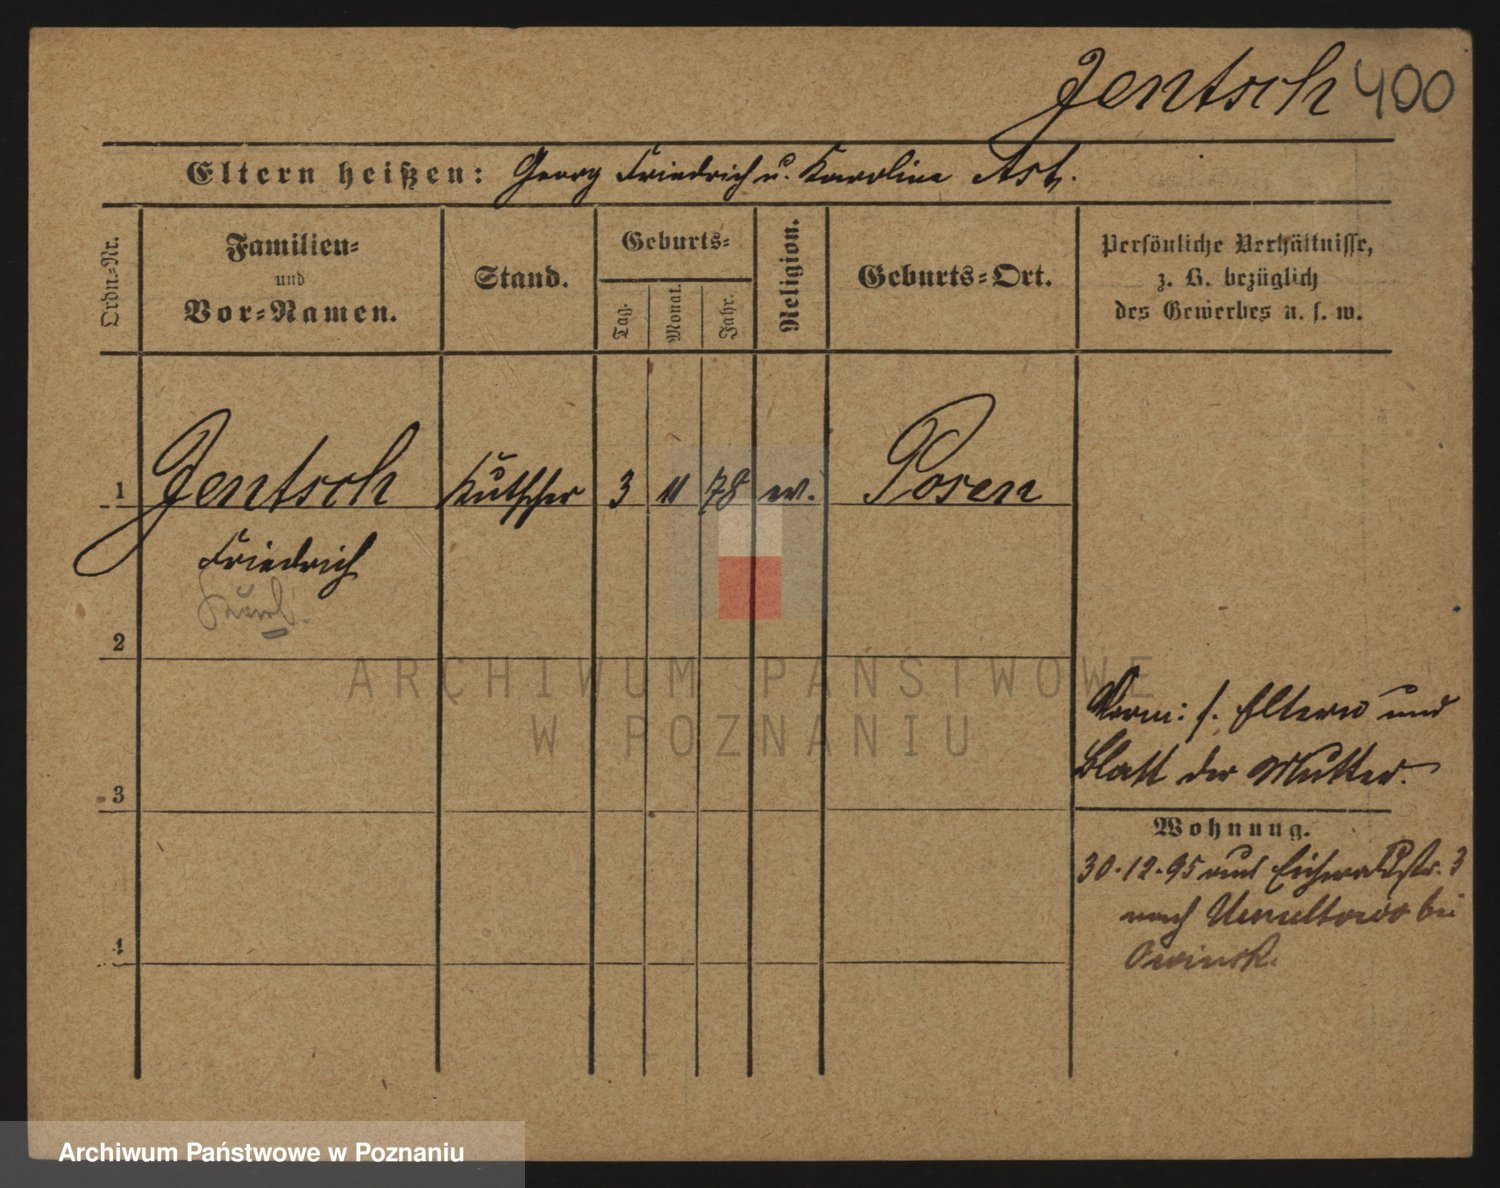 Jentsch 400
Eltern heißen: Georg Friedrich u. Karoline Ast.
Ordn=Nr.
Familien=
und
Vor=Namen.
Stand.
Geburts=
Tag.
Monat.
Jahr.
Religion.
Geburts=Ort.
Persönliche Verhältnisse,
z. B. bezüglich
des Gewerbes u. s. w.
1 Jentsch Kutscher 3 11 78 ev. Posen
Friedrich
2
ARCHIWUM PAŃSTWOWE
W POZNANIU
Eltern und
Blatt der Mutter.
3
Wohnung.
30.12.95 aus Eichwaldstr. 3
nach Umultowo bei
Owinsk.
4
Archiwum Państwowe w Poznaniu